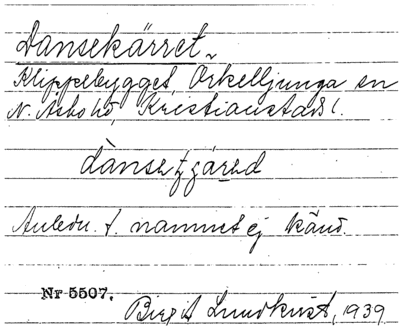 Dansekärret
Klippebygget, Örkelljunga sn
N. Åsbo hd, Kristianstads l.
dànsətʃä́rəd
Anledn. t. namnet ej känd.
Nr 5507.
Birgit Lundkvist, 1939